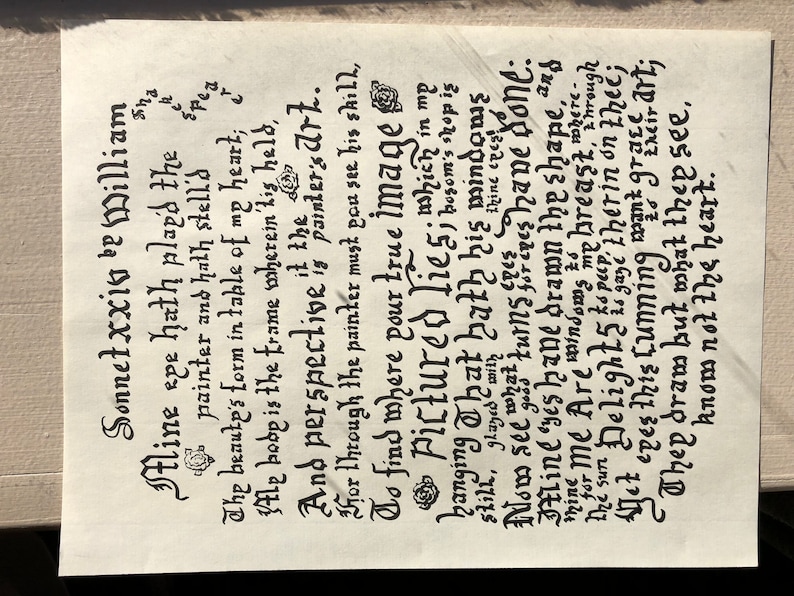 Sonnet xxiv by William Shakespear
Mine eye hath play'd the
painter and hath stell'd
Thy beauty's form in table of my heart;
My body is the frame wherein 'tis held,
And perspective it is the painter's art.
For through the painter must you see his skill,
To find where your true image
pictured lies; which in my bosom's shop is
hanging still, That hath his windows glazed with thine eyes!
Now see what good turns eyes for eyes have done.
Mine eyes have drawn thy shape, and
thine for me Are windows to my breast, where-through
the sun Delights to peep, to gaze therin on thee;
Yet eyes this cunning want to grace their art;
They draw but what they see,
know not the heart.